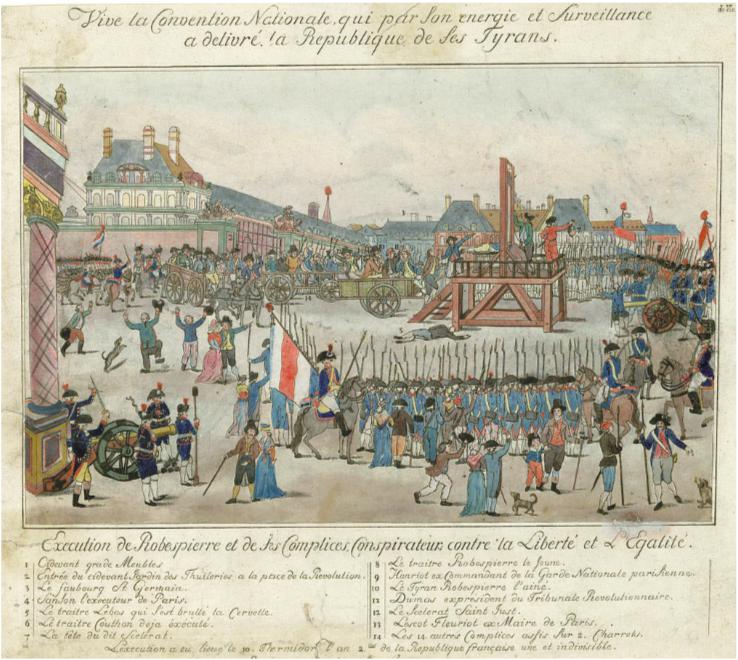 Vive la Convention Nationale, qui par son énergie et Surveillance
a delivré la Republique de ses Tyrans.
Execution de Robespierre et de ses Complices, Conspirateurs contre la Liberté et L'Egalité.
1 Cidevant garde Meubles
2 Entrée du cidevant Jardin des Thuileries a la place de la Revolution.
3 Le faubourg St Germain.
4 Sanson l'executeur de Paris.
5 Le traitre Lebas qui s'est brullé la Cervelle.
6 Le traitre Couthon deja éxécuté.
7 La tête du dit Scelérat.
8 Le traitre Robespierre le Jeune.
9 Hanriot ex Commandant de la Garde Nationale parisienne.
10 Le Tyran Robespierre l'ainé.
11 Dumas expresident du Tribunale Revolutionnaire.
12 Le Scelerat Saint Just.
13 Lescot Fleuriot ex Maire de Paris.
14 Les 14 autres Complices assis sur 2 Charrets.
L'execution a eu lieu le 10 Thermidor l'an 2 de la Republique française une et indivisible.